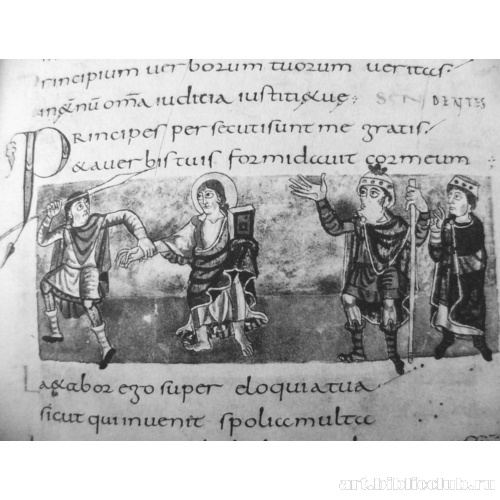 Principium verborum tuorum veritas·
in&ernū om̄a iudicia iustitiae tuae·
DENTES
Principes persecuti sunt me gratis·
& a verbis tuis formidavit cor meum
La&abor ego super eloquia tua
sicut qui invenit spolia multa
art.biblioclub.ru